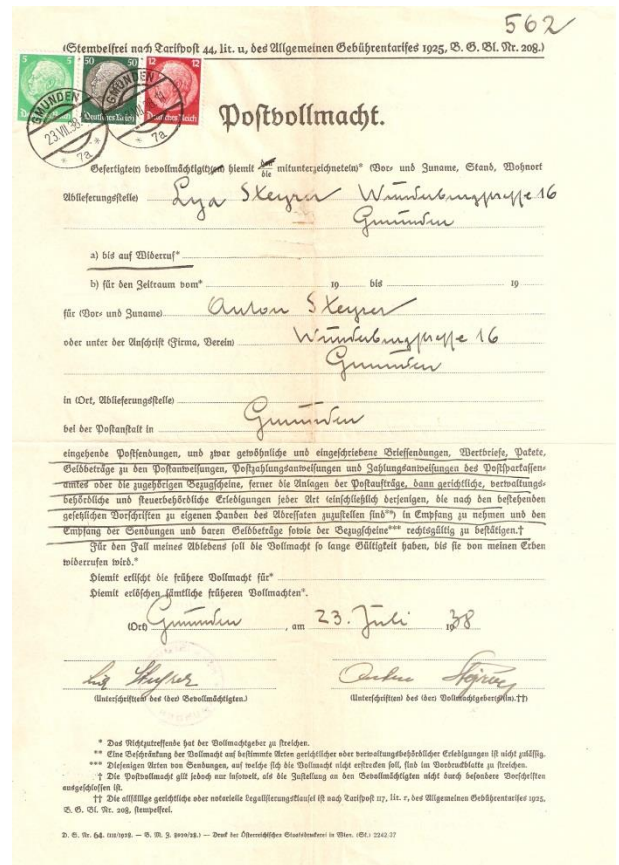 562
(Stempelfrei nach Tarifpost 44, lit. u, des Allgemeinen Gebührentarifes 1925, B. G. Bl. Nr. 208.)
5 5 50 50 12 12
Deutsches Reich Deutsches Reich Deutsches Reich
GMUNDEN GMUNDEN
23.VII.38
* 7a * * 7a
Postvollmacht.
Gefertigter bevollmächtigt(en) hiemit den die mitunterzeichnete(n)* (Vor- und Zuname, Stand, Wohnort
Ablieferungsstelle) Steyrer 16
Gmunden
a) bis auf Widerruf*
b) für den Zeitraum vom* 19 bis 19
für (Vor- und Zuname) Anton Steyrer
oder unter der Anschrift (Firma, Verein) 16
Gmunden
in (Ort, Ablieferungsstelle)
bei der Postanstalt in Gmunden
eingehende Postsendungen, und zwar gewöhnliche und eingeschriebene Briefsendungen, Wertbriefe, Pakete,
Geldbeträge zu den Postanweisungen, Postzahlungsanweisungen und Zahlungsanweisungen des Postsparkassen-
amtes oder die zugehörigen Bezugscheine, ferner die Anlagen der Postaufträge, dann gerichtliche, verwaltungs-
behördliche und steuerbehördliche Erledigungen jeder Art (einschließlich derjenigen, die nach den bestehenden
gesetzlichen Vorschriften zu eigenen Handen des Adressaten zuzustellen sind**) in Empfang zu nehmen und den
Empfang der Sendungen und baren Geldbeträge sowie der Bezugscheine*** rechtsgültig zu bestätigen.†
Für den Fall meines Ablebens soll die Vollmacht so lange Gültigkeit haben, bis sie von meinen Erben
widerrufen wird.*
Hiemit erlischt die frühere Vollmacht für*
Hiemit erlöschen sämtliche früheren Vollmachten*.
(Ort) Gmunden , am 23. Juli 1938
Steyrer Anton Steyrer
(Unterschrift(en) des (der) Bevollmächtigten.) (Unterschrift(en) des (der) Vollmachtgeber(s)(in).††)
* Das Nichtzutreffende hat der Vollmachtgeber zu streichen.
** Eine Beschränkung der Vollmacht auf bestimmte Arten gerichtlicher oder verwaltungsbehördlicher Erledigungen ist nicht zulässig.
*** Diejenigen Arten von Sendungen, auf welche sich die Vollmacht nicht erstrecken soll, sind im Vordruckblatte zu streichen.
† Die Postvollmacht gilt jedoch nur insoweit, als die Zustellung an den Bevollmächtigten nicht durch besondere Vorschriften
ausgeschlossen ist.
†† Die allfällige gerichtliche oder notarielle Legalisierungsklausel ist nach Tarifpost 117, lit. r, des Allgemeinen Gebührentarifes 1925,
B. G. Bl. Nr. 208, stempelfrei.
D. S. Nr. 64. — Druck der Österreichischen Staatsdruckerei in Wien. (St.) 2242 37